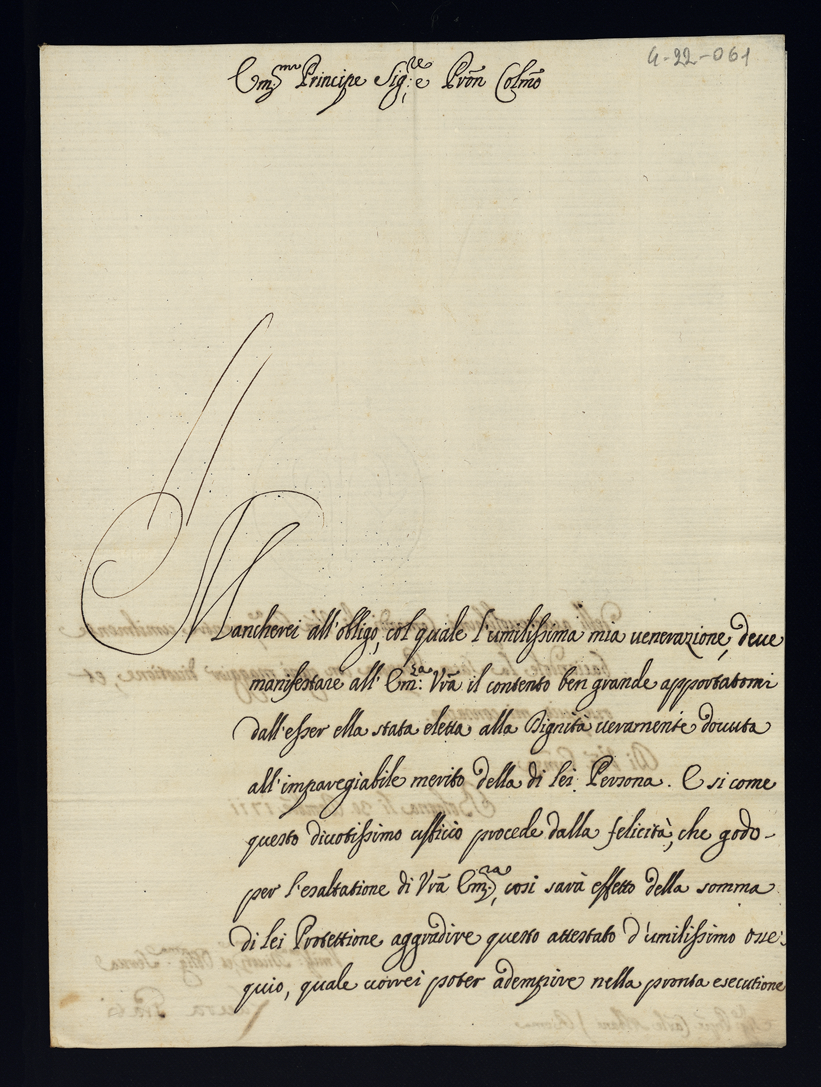 4-22-061
Em:mo Principe e Sig:re e Prõn Colmõ
Mancherei all'obligo, col quale l'umilissima mia venerazione, deve
manifestare all'Em:za Vrã il contento ben grande apportatomi
dall'esser ella stata eletta alla Dignità veramente dovuta
all'imparegiabile merito della di lei Persona. E si come
questo divotissimo ufficio procede dalla felicità, che godo
per l'esaltatione di Vrã Em:za, cosi sarà effetto della somma
di lei Protettione aggradire questo attestato d'umilissimo osse:
quio, quale vorrei poter adempire nella pronta esecutione